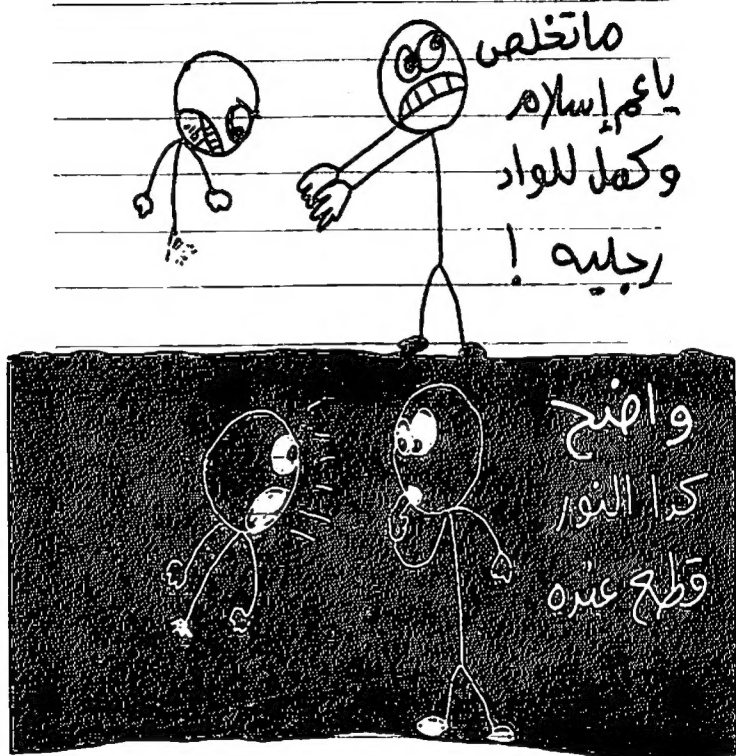 ماتخلص
ياعم إسلام
وكمل للواد
رجليه !
واضح
كدا النور
قطع عنده